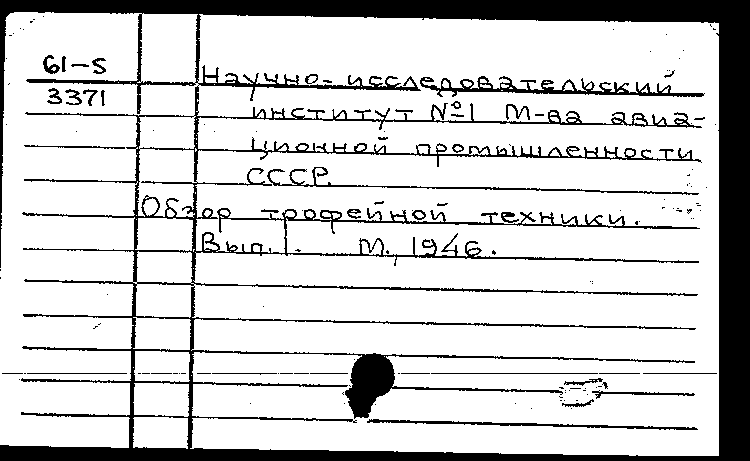 61-5
3371
Научно-исследовательский
институт №1 М-ва авиа-
ционной промышленности
СССР.
Обзор трофейной техники.
Вып. 1. М., 1946.